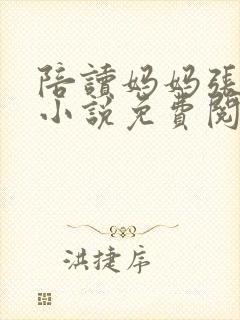 陪讀媽媽張
小說免費閱
洪捷序